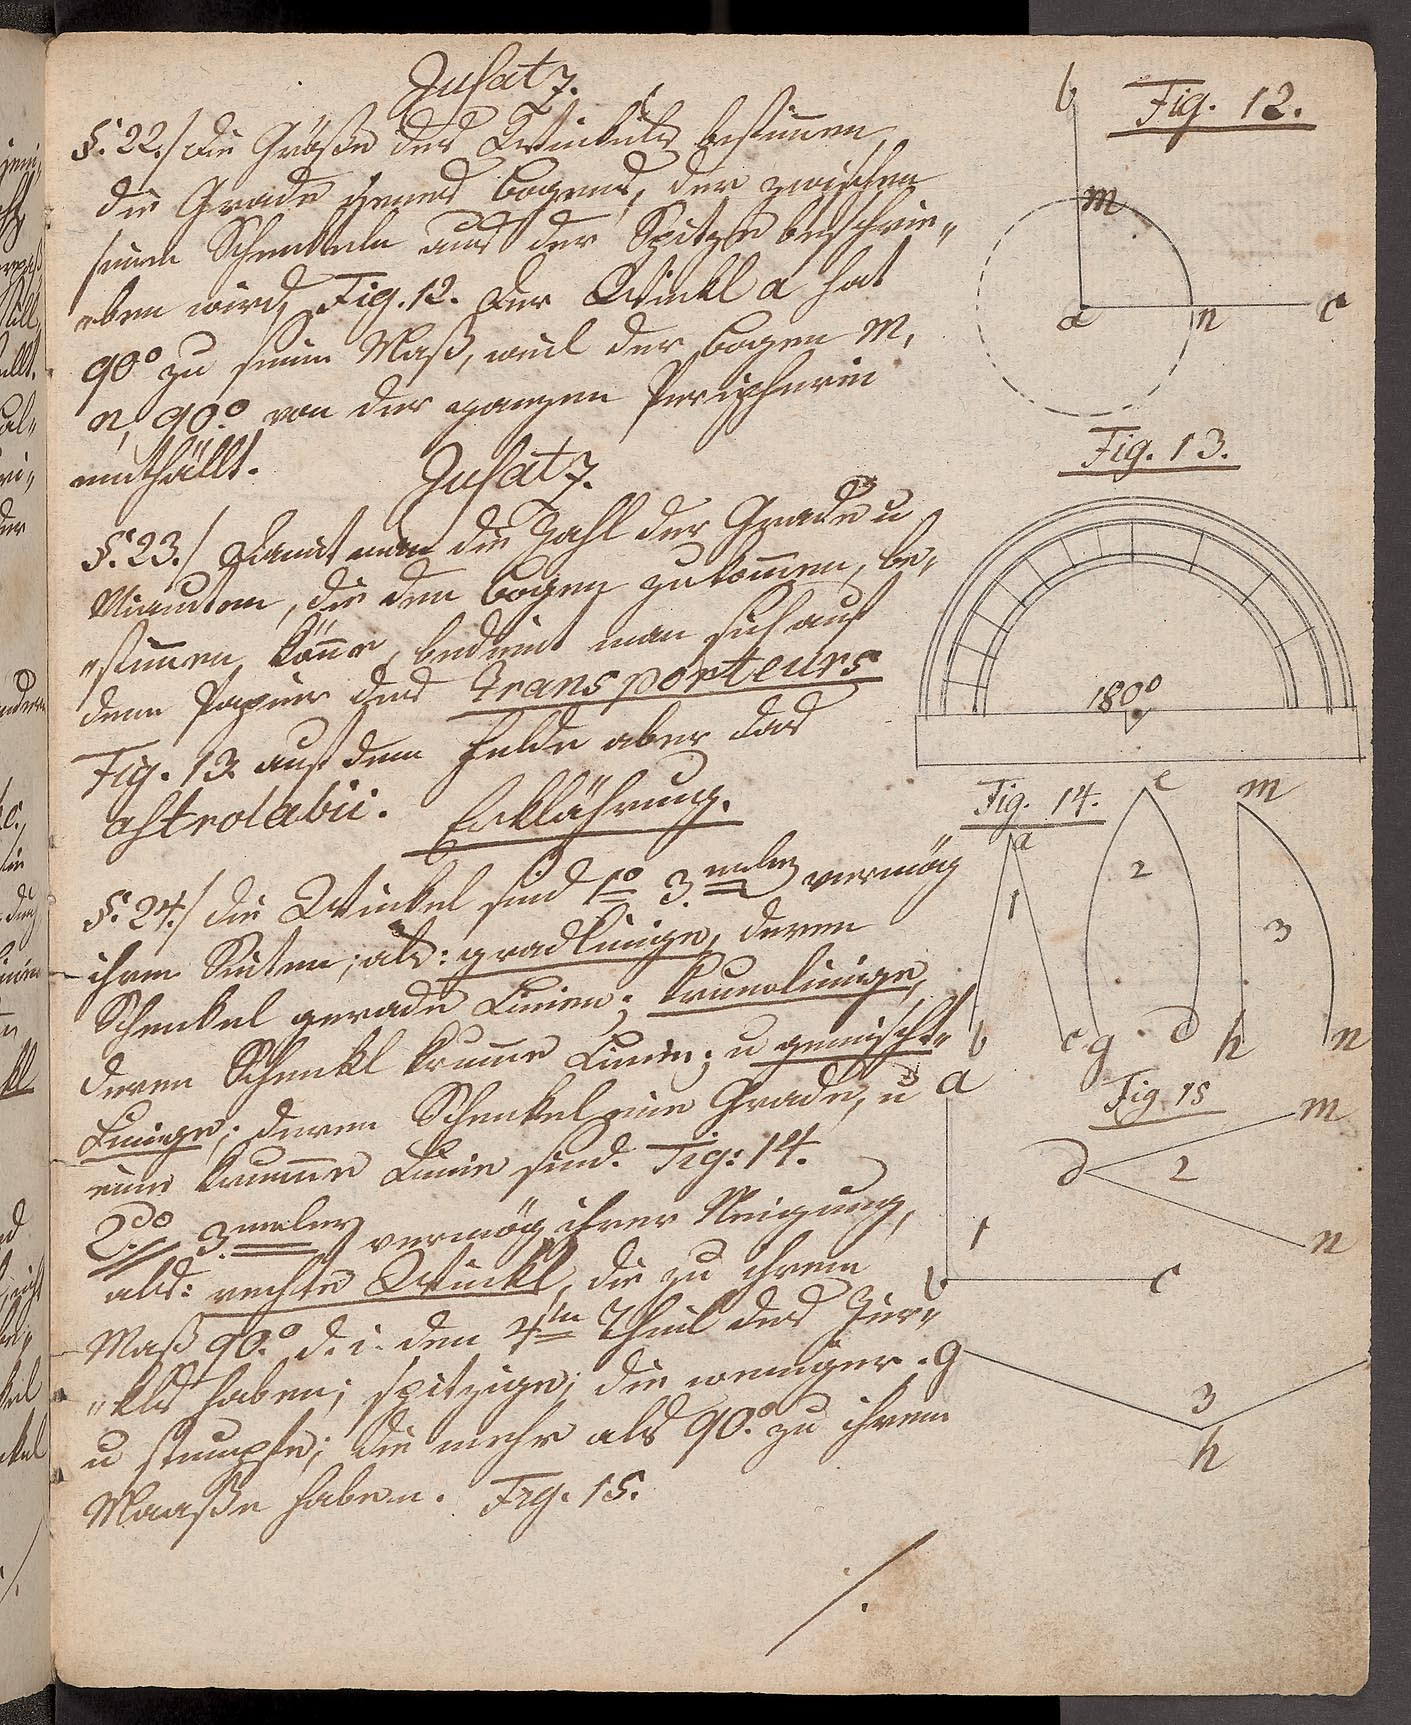 Zusatz.
§. 22./ Die Größe des Winkels bestimmen
die Grade jenes Bogens, der zwischen
seinen Schenkeln aus der Spitze beschrie„
„ben wird, Fig. 12. Der Winkl a hat
90° zu seinem Maß, weil der Bogen m,
n, 90° von der ganzen Peripherie
enthällt.
Zusatz.
§. 23./ Damit man die Zahl der Grade u
Minuten, die den Bogen zukommen, be„
„stimmen könne, bedient man sich auf
dem Papier des Transporteurs
Fig. 13. auf dem Felde aber das
Astrolabii.
Erklährung.
§. 24./ Die Winkel sind 1o 3.erley vermög
ihren Seiten; als: gradlinige, deren
Schenkel gerade Linien; krumlinige,
deren Schenkl krumme Linien; u gemischt„
Linige; deren Schenkel eine Grade, u
eine krumme Linie sind. Fig: 14.
2do 3.erley vermög ihrer Neigung,
als: rechte Winkl, die zu ihrem
Maß 90.° d. i. den 4ten Theil des Zir„
„kls haben; spitzige; die weniger.
u stumpfe; die mehr als 90.° zu ihrem
Maaße haben. Fig. 15.
./.
Fig. 12.
b
m
a
n
c
Fig. 13.
180°
Fig. 14.
a
1
b
c
e
2
g
d
m
3
h
n
Fig 15
a
1
b
c
d
2
m
n
g
3
h